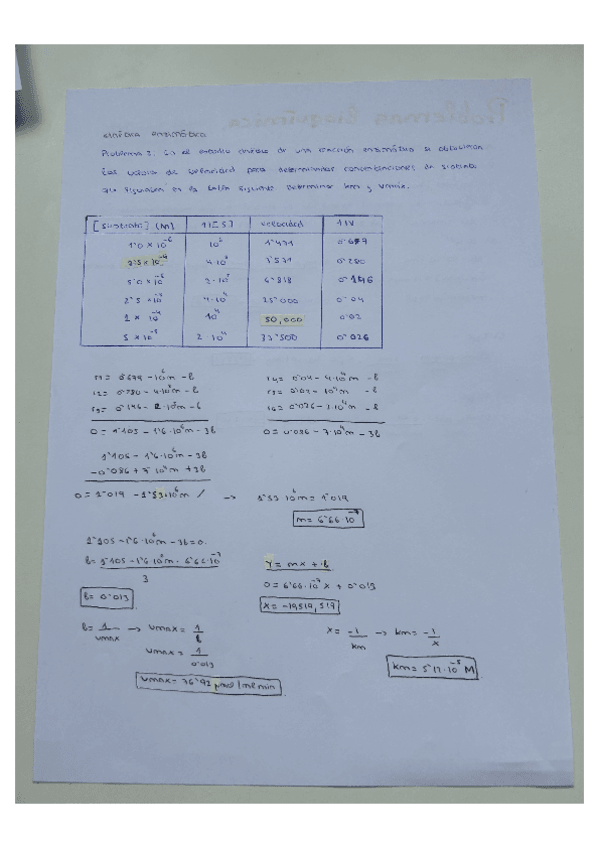 CINÉTICA ENZIMÁTICA
Problema 2. En el estudio cinético de una reacción enzimática se obtuvieron
los valores de velocidad para determinadas concentraciones de sustrato
que figuran en la tabla siguiente. Determinar km y Vmáx.
[Sustrato] (M) 1/[S] Velocidad 1/V
1'0 x 10⁻⁶ 1'471 0'679
4·10⁵ 3'571 0'280
5'0 x 10⁻⁶ 2·10⁵ 6'818 0'146
2'5 x 10⁻⁵ 4·10⁴ 25'000 0'04
10⁴ 50,000 0'02
2·10⁴ 0'026
r1= 0'679 - 10⁶m - b
r2= 0'280 - 4·10⁵m - b
r3= 0'146 - 2·10⁵m - b
0= 1'105 - 1'6·10⁶m - 3b
r4= 0'04 - 4·10⁴m - b
r5= 0'02 - 10⁴m - b
r6= 0'026 - 2·10⁴m - b
0= 0'086 - 7·10⁴m - 3b
1'105 - 1'6·10⁶m - 3b
-0'086 + 7·10⁴m + 3b
0= 1'019 - 1'53·10⁶m / → 1'53·10⁶m = 1'019
m= 6'66·10⁻⁷
1'105 - 1'6·10⁶m - 3b = 0
b= 1'105 - 1'6·10⁶m · 6'66·10⁻⁷
3
b= 0'013
Y= mx + b
0= 6'66·10⁻⁷x + 0'013
X= -19,519,519
b= 1/Vmax → Vmax = 1/b
Vmax = 1/0'013
Vmax= 76'92 µmol/ml min
x = -1/km → km = -1/x
km= 5'12·10⁻⁵ M